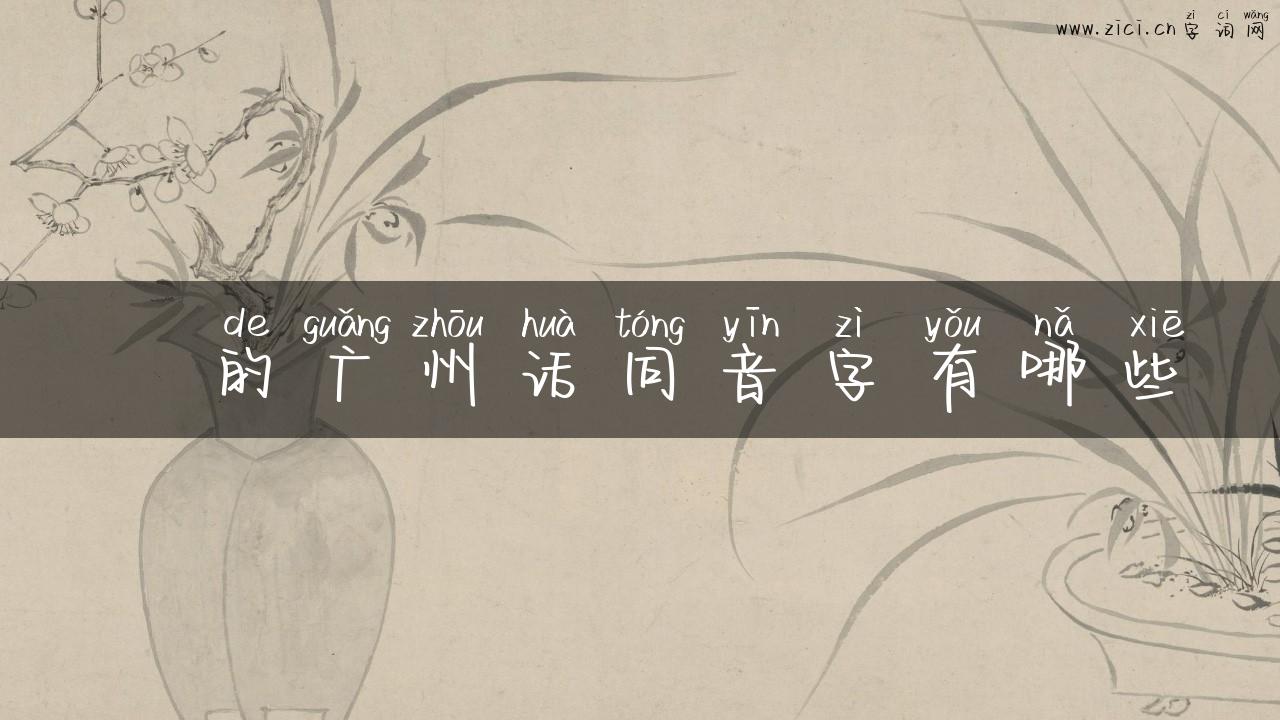 zì cí wǎng
www.zici.cn字词网
de guǎng zhōu huà tóng yīn zì yǒu nǎ xiē
的广州话同音字有哪些